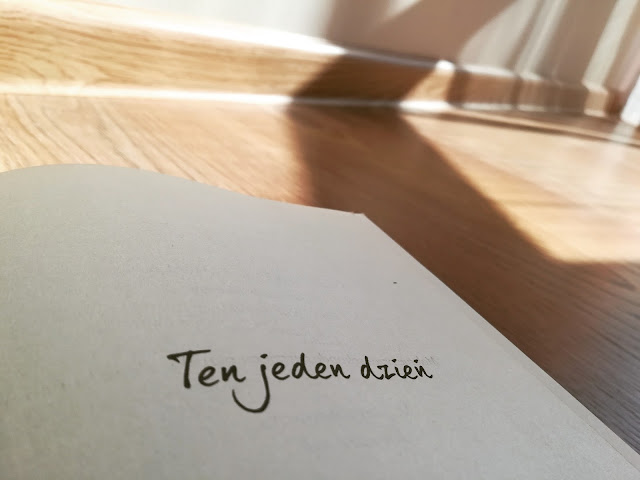 Ten jeden dzień